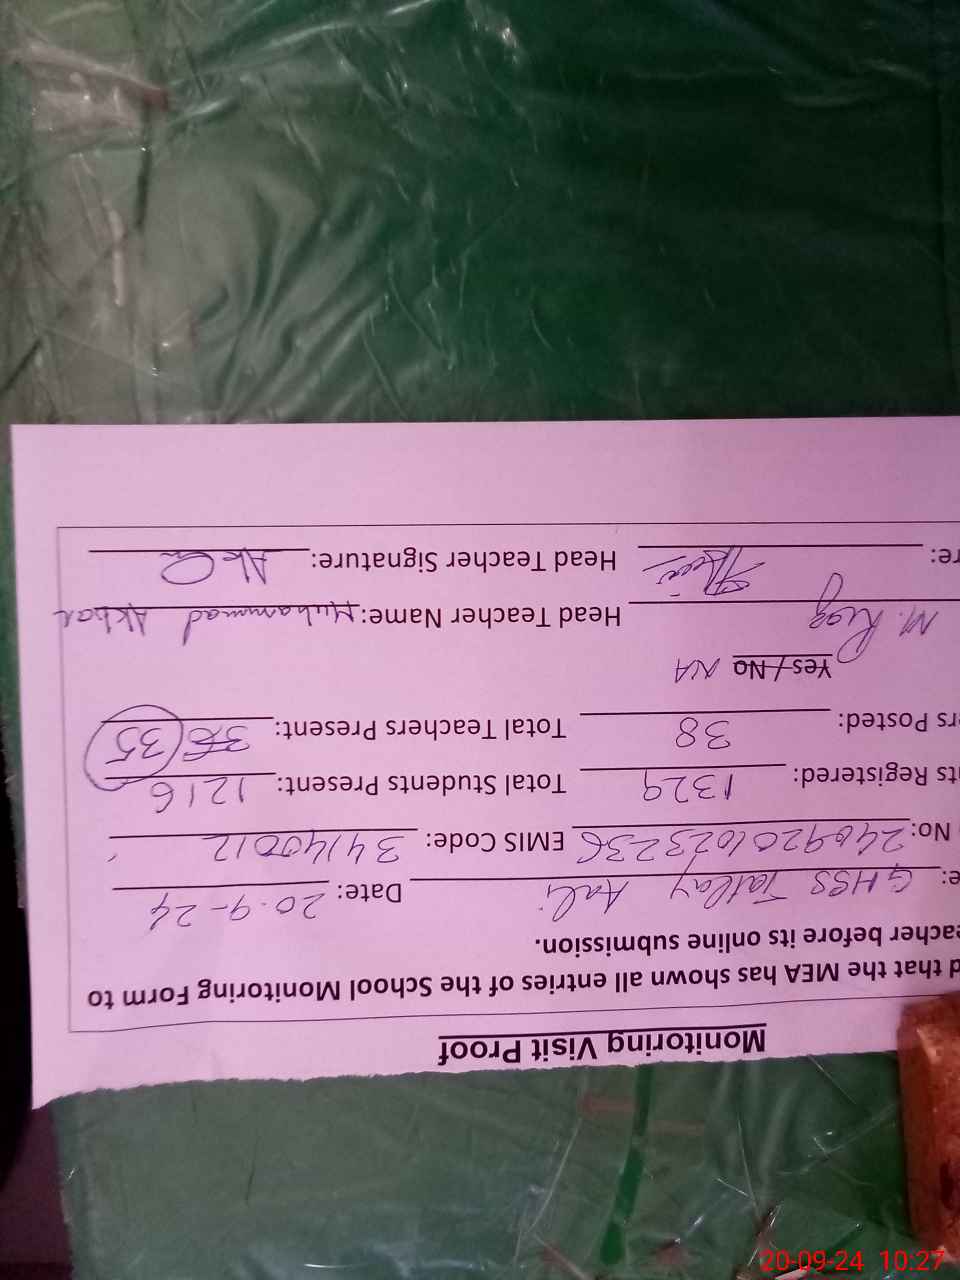 Monitoring Visit Proof
d that the MEA has shown all entries of the School Monitoring Form to
eacher before its online submission.
e: GHSS Tatlay Aali Date: 20-9-24
No: EMIS Code: 34140012
ts Registered: 1329 Total Students Present: 1216
ers Posted: 38 Total Teachers Present: 36 35
Yes / No NA
M. Riaz Head Teacher Name: Muhammad Akbar
re: Head Teacher Signature:
20-09-24 10:27